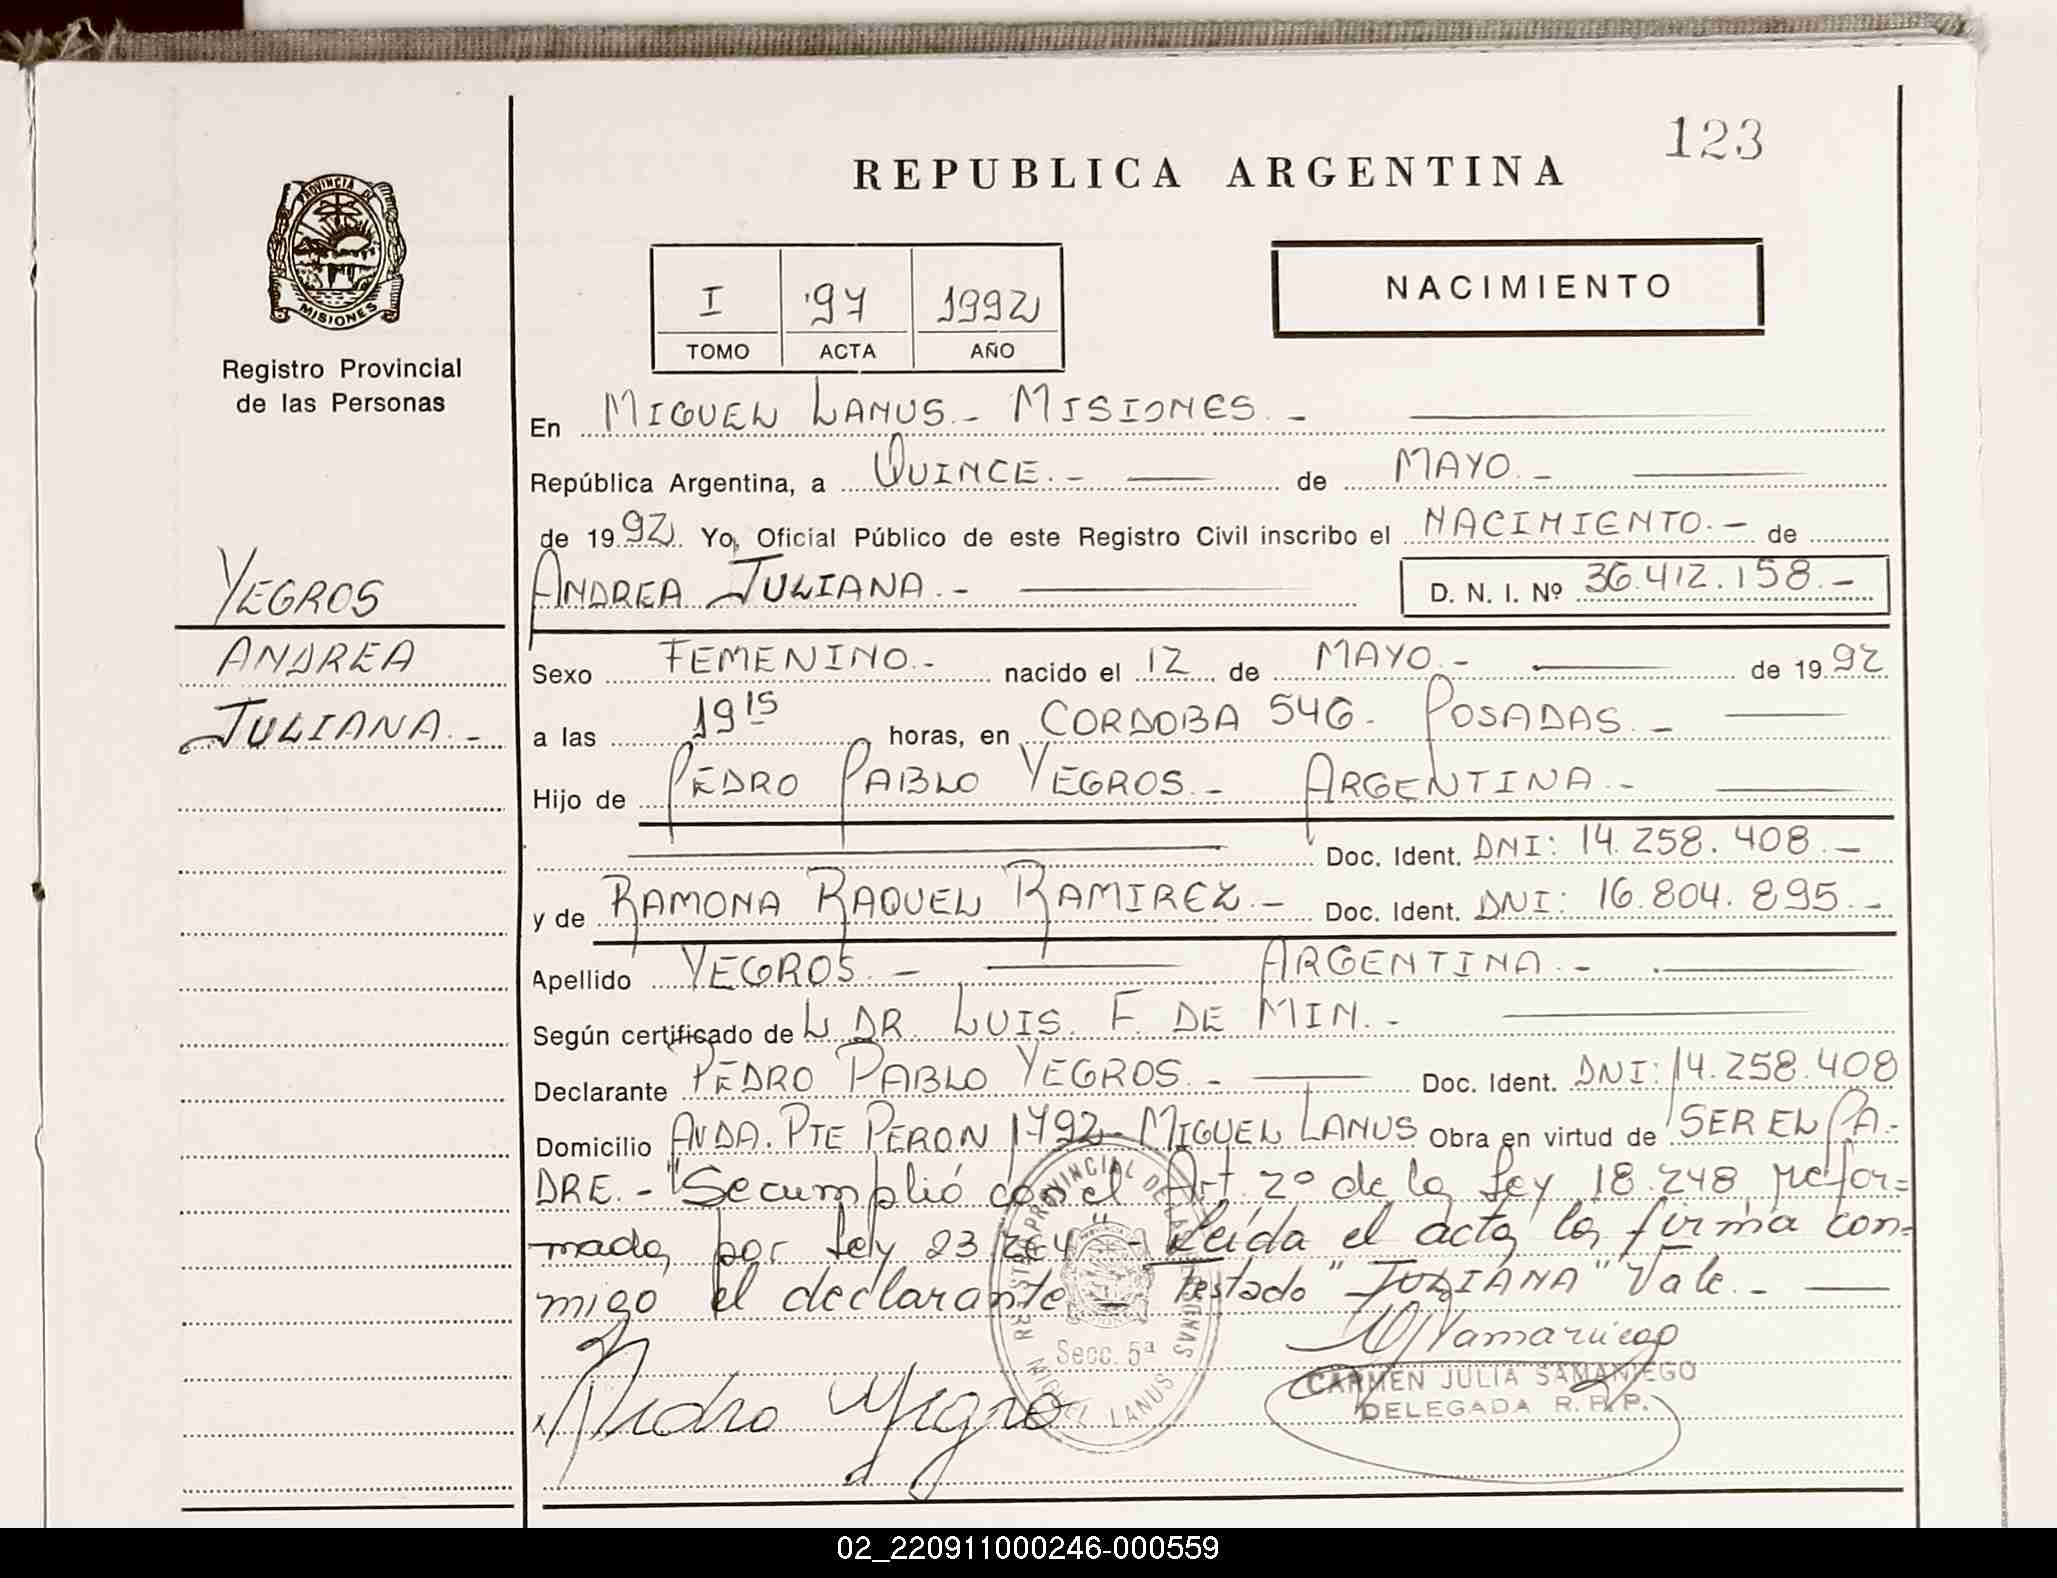 123
REPUBLICA ARGENTINA
PROVINCIA DE
MISIONES
Registro Provincial
de las Personas
NACIMIENTO
I 97 1992
TOMO ACTA AÑO
En MIGUEL LANUS.- MISIONES.-
República Argentina, a QUINCE.- de MAYO.-
de 1992. Yo, Oficial Público de este Registro Civil inscribo el NACIMIENTO.- de
ANDREA JULIANA.- D. N. I. Nº 36.412.158.-
YEGROS
ANDREA
JULIANA.-
Sexo FEMENINO.- nacido el 12 de MAYO.- de 1992
a las 19 15 horas, en CORDOBA 546. POSADAS.-
Hijo de PEDRO PABLO YEGROS.- ARGENTINA.-
Doc. Ident. DNI: 14.258.408.-
y de RAMONA RAQUEL RAMIREZ.- Doc. Ident. DNI: 16.804.895.-
Apellido YEGROS.- ARGENTINA.-
Según certificado de L DR. LUIS. F. DE MIN.-
Declarante PEDRO PABLO YEGROS.- Doc. Ident. DNI: 14.258.408
Domicilio AVDA. PTE PERON 1792- MIGUEL LANUS Obra en virtud de SER EL PA-
DRE.- "Se cumplió con el Art. 2º de la Ley 18.248, refor=
mada por Ley 23.264" - Leída el acta la firma con=
migo el declarante - Testado "JULIANA" Vale.-
REGISTRO PROVINCIAL DE LAS PERSONAS
Secc. 5ª
MIGUEL LANUS
Pedro Yegro
CARMEN JULIA SAMANIEGO
DELEGADA R.P.P.
02_220911000246-000559